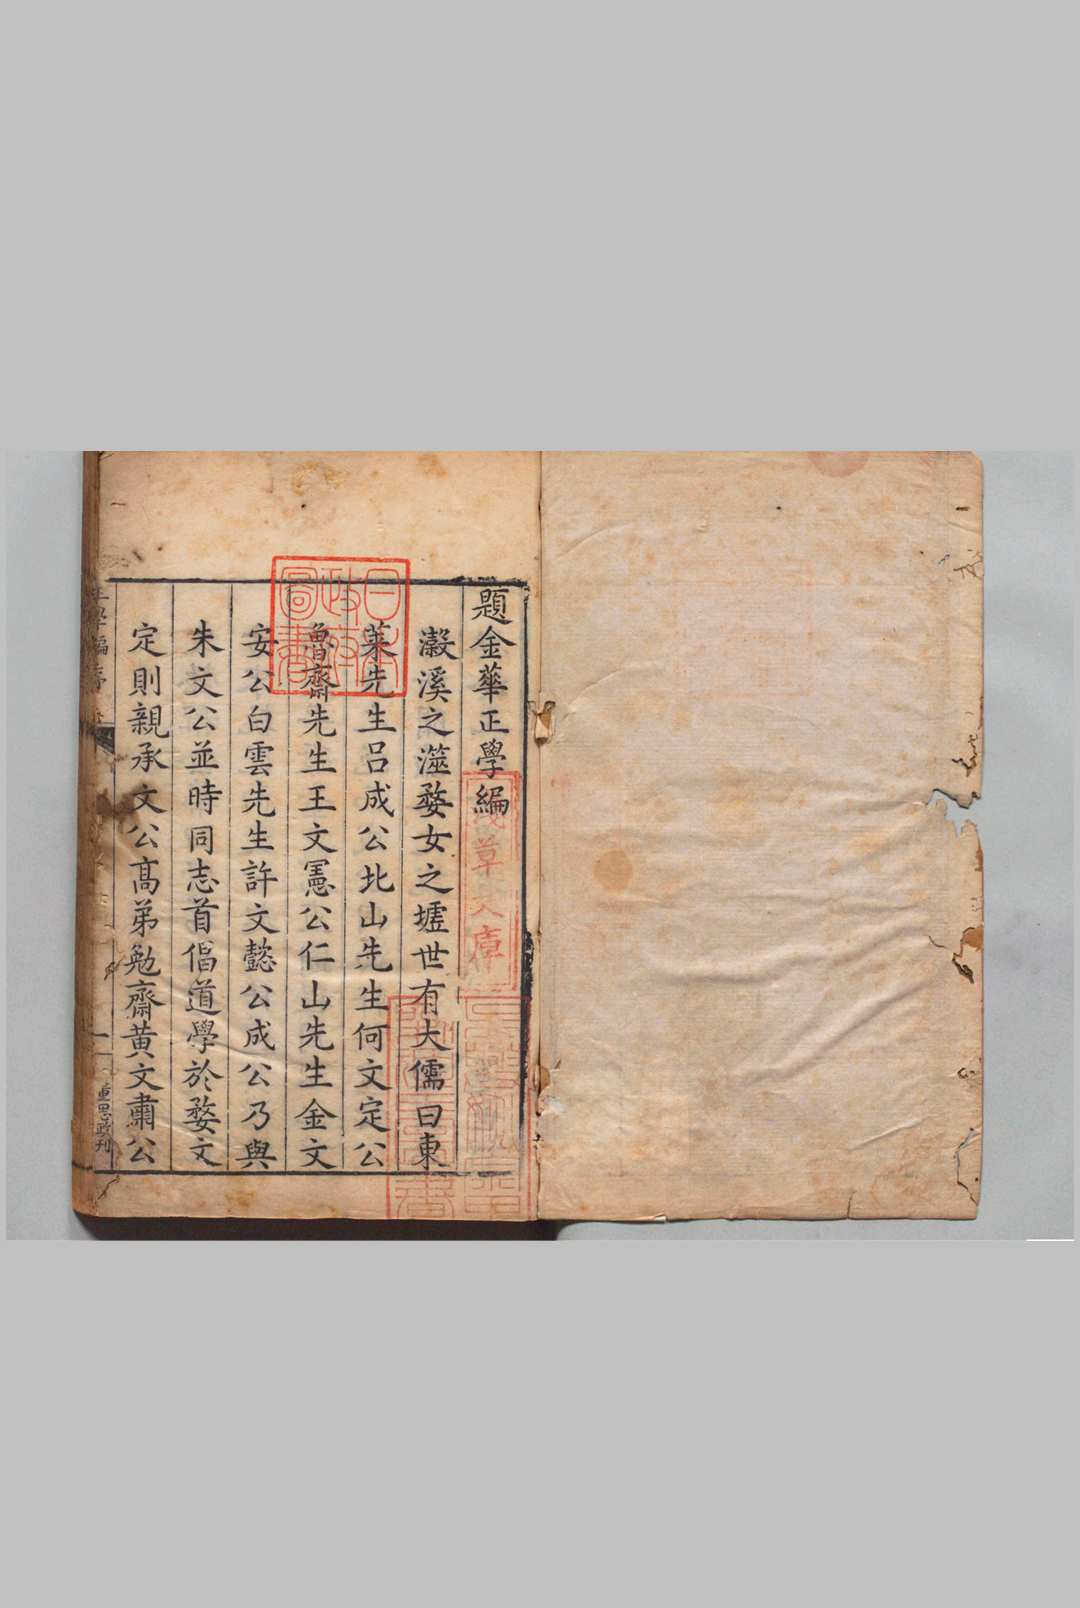 題金華正學編
瀫溪之澨婺女之墟世有大儒曰東
萊先生呂成公北山先生何文定公
魯齋先生王文憲公仁山先生金文
安公白雲先生許文懿公成公乃與
朱文公並時同志首倡道學於婺文
定則親承文公高弟勉齋黃文肅公
正學編序
日本
政府
圖書
淺草文庫